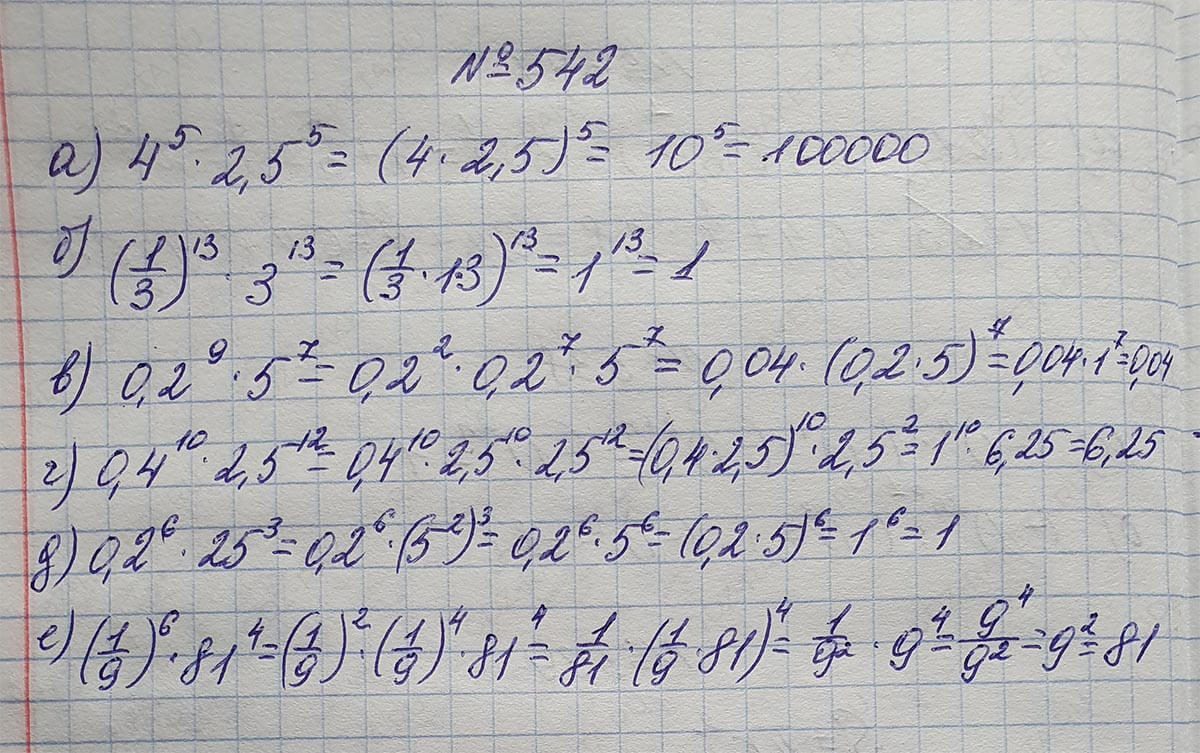 №542
а) 4⁵ · 2,5⁵ = (4 · 2,5)⁵ = 10⁵ = 100000
б) (1/3)¹³ · 3¹³ = (1/3 · 13)¹³ = 1¹³ = 1
в) 0,2⁹ · 5⁷ = 0,2² · 0,2⁷ · 5⁷ = 0,04 · (0,2 · 5)⁷ = 0,04 · 1⁷ = 0,04
г) 0,4¹⁰ · 2,5¹² = 0,4¹⁰ · 2,5¹⁰ · 2,5¹² = (0,4 · 2,5)¹⁰ · 2,5² = 1¹⁰ · 6,25 = 6,25
д) 0,2⁶ · 25³ = 0,2⁶ · (5²)³ = 0,2⁶ · 5⁶ = (0,2 · 5)⁶ = 1⁶ = 1
е) (1/9)⁶ · 81⁴ = (1/9)² · (1/9)⁴ · 81⁴ = 1/81 · (1/9 · 81)⁴ = 1/9² · 9⁴ = 9⁴/9² = 9² = 81